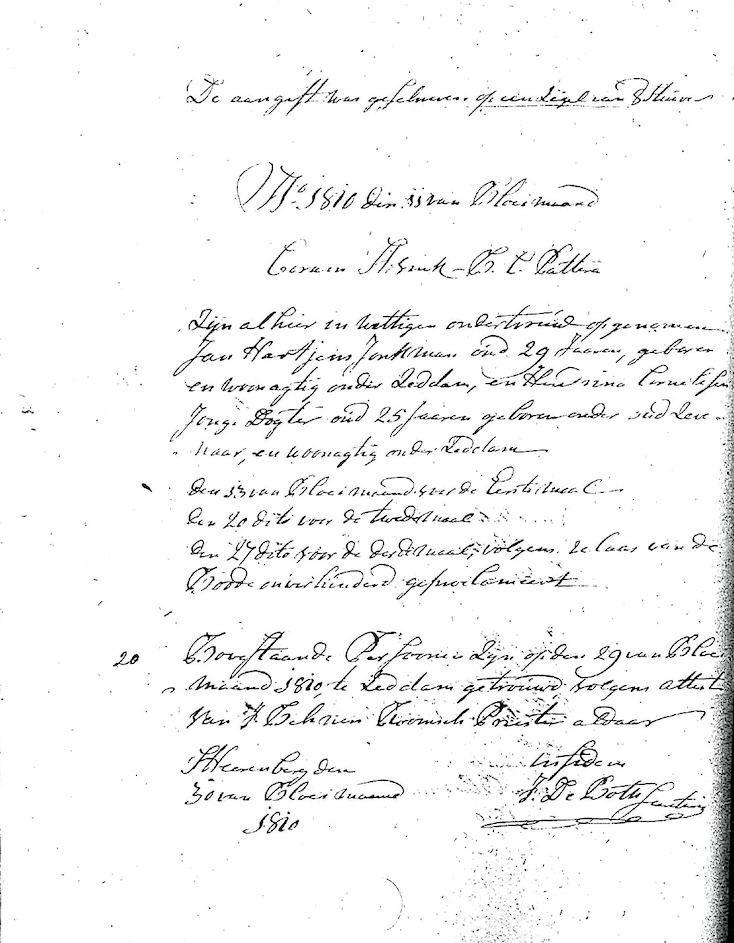 De aangift was geschreven op een Zegel van 8 Stuiver
Ao. 1810 den 11 van Bloeimaand
Coram
Zijn alhier in Wettigen ondertrouw opgenomen
Jan Hartjens Jonkman oud 29 Jaaren, geboren
en woonagtig onder Zeddam, en Hendrina Cornelissen
Jonge Dogter oud 25 Jaaren geboren onder oud Zeve-
naar, en woonagtig onder Zeddam
den 13 van Bloeimaand voor de Eerstemaal
den 20 dito voor de tweedemaal
den 27 dito voor de derdemaal, volgens relaas van de
Boode onverhinderd geproclameert
20 Bovenstaande Persoonen Zijn op den 29 van Bloei
maand 1810, te Zeddam getrouwd, volgens attest
van J. Roomsch Priester aldaar
SHeerenberg den in fidem
30 van Bloeimaand J. De Both
1810